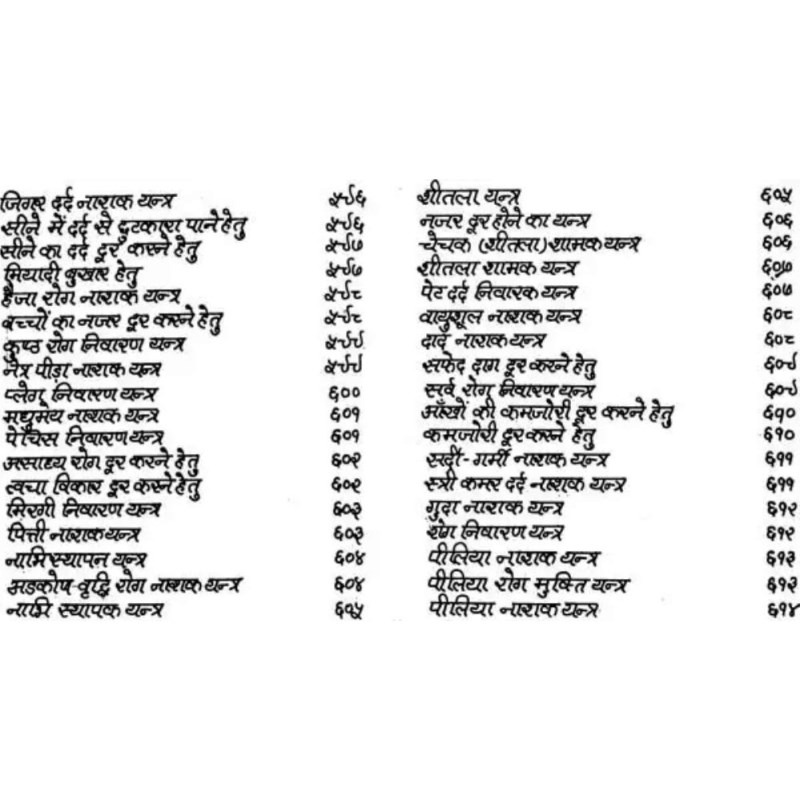 जिगर दर्द नाशक यन्त्र ५९६
सीने में दर्द से छुटकारा पाने हेतु ५९६
सीने का दर्द दूर करने हेतु ५९७
मियादी बुखार हेतु ५९७
हैजा रोग नाशक यन्त्र ५९८
बच्चों का नजर दूर करने हेतु ५९८
कुष्ठ रोग निवारण यन्त्र ५९९
नेत्र पीड़ा नाशक यन्त्र ५९९
प्लेग निवारण यन्त्र ६००
मधुमेय नाशक यन्त्र ६०१
पेचिस निवारण यन्त्र ६०१
असाध्य रोग दूर करने हेतु ६०२
त्वचा विकार दूर करने हेतु ६०२
मिरगी निवारण यन्त्र ६०३
पित्ती नाशक यन्त्र ६०३
नाभि स्थापन यन्त्र ६०४
अडकोष-वृद्धि रोग नाशक यन्त्र ६०४
नाभि स्थापक यन्त्र ६०५
शीतला यन्त्र ६०५
नजर दूर होने का यन्त्र ६०६
चेचक (शीतला) शामक यन्त्र ६०६
शीतला शामक यन्त्र ६०७
पेट दर्द निवारक यन्त्र ६०७
वायुशूल नाशक यन्त्र ६०८
दाद नाशक यन्त्र ६०८
सफेद दाग दूर करने हेतु ६०९
सर्व रोग निवारण यन्त्र ६०९
आँखों की कमजोरी दूर करने हेतु ६१०
कमजोरी दूर करने हेतु ६१०
सर्दी-गर्मी नाशक यन्त्र ६११
स्त्री कमर दर्द नाशक यन्त्र ६११
गुदा नाशक यन्त्र ६१२
रोग निवारण यन्त्र ६१२
पीलिया नाशक यन्त्र ६१३
पीलिया रोग मुक्ति यन्त्र ६१३
पीलिया नाशक यन्त्र ६१४